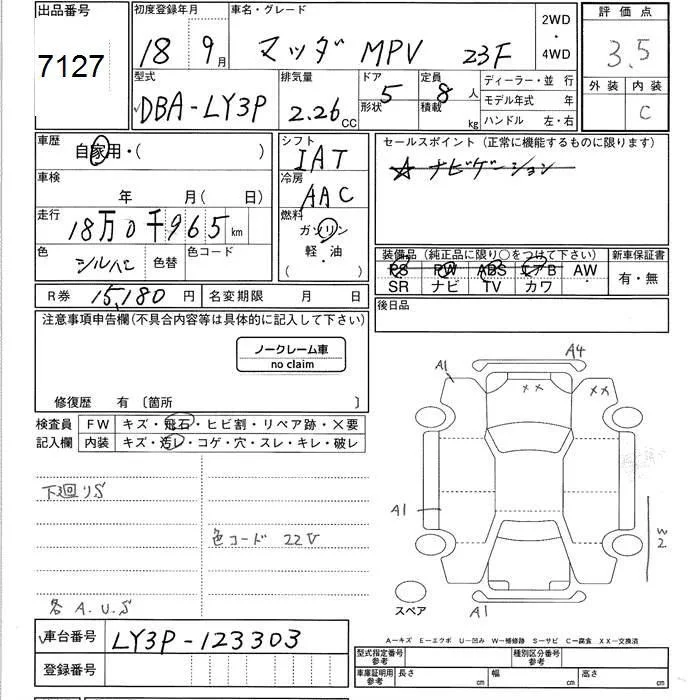 出品番号 初度登録年月 車名・グレード 評価点
7127 18 9月 マツダ MPV 23F 2WD・4WD 3.5
型式 排気量 ドア 定員 ディーラー・並 行 外装 内装
DBA-LY3P 2.26 CC 5 形状 8人 積載 kg モデル年式 年 C
ハンドル 左・右
車歴 自家用・( ) シフト IAT セールスポイント(正常に機能するものに限ります)
車検 年 月( 日) 冷房 AAC ☆ナビゲーション
走行 18万0千965km 燃料 ガソリン 軽・油 ( )
色 シルバー 色替 色コード 装備品(純正品に限り○をつけて下さい) 新車保証書
PS PW ABS エアB AW 有・無
SR ナビ TV カワ
R券 15,180円 名変期限 月 日 後日品
注意事項申告欄(不具合内容等は具体的に記入して下さい)
ノークレーム車
no claim
修復歴 有 〔箇所 〕
検査員 FW キズ・飛石・ヒビ割・リペア跡・×要
記入欄 内装 キズ・汚レ・コゲ・穴・スレ・キレ・破レ
A1 A4
×× ××
下廻りS
A1
色コード 22V
W2
各A.U.S
スペア A1
A-キズ E-エクボ U-凹み W-補修跡 S-サビ C-腐食 XX-交換済
車台番号 LY3P-123303
型式指定番号 参考 種別区分番号 参考
登録番号
車庫証明用 参考 長さ cm 幅 cm 高さ cm